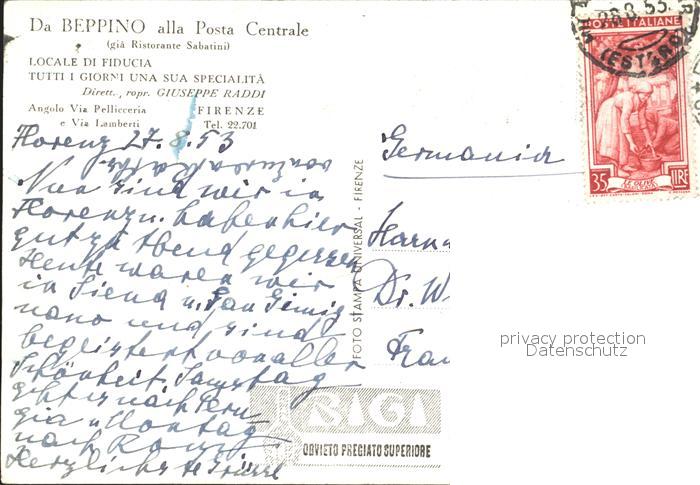 Da BEPPINO alla Posta Centrale
(già Ristorante Sabatini)
LOCALE DI FIDUCIA
TUTTI I GIORNI UNA SUA SPECIALITÀ
Dirett., ropr. GIUSEPPE RADDI
Angolo Via Pellicceria FIRENZE
e Via Lamberti Tel. 22.701
Florenz 27.8.53
Nun sind wir in
Florenz u. haben hier
gut zu Abend gegessen
Heute waren wir
in Siena u. San Gimig
nano und sind
begeistert von aller
Schönheit. Samstag
geht es nach Peru
gia u. Montag
nach Rom.
Herzlichste Grüsse
FOTO STAMPA UNIVERSAL - FIRENZE
Germania
Dr. W
Frau
28.8.53
(ESTERO)
POSTE ITALIANE
35 LIRE
BIGI
ORVIETO PREGIATO SUPERIORE
privacy protection
Datenschutz